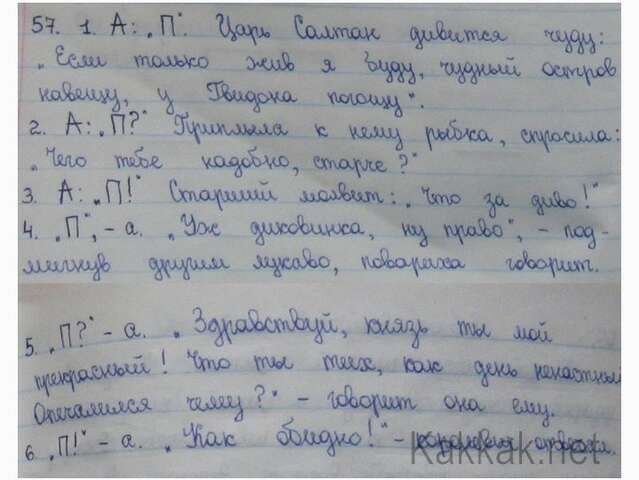 57. 1. А: „П". Царь Салтан дивится чуду:
„Если только жив я буду, чудный остров
навещу, у Гвидона погощу".
2. А: „П?" Приплыла к нему рыбка, спросила:
„Чего тебе надобно, старче?"
3. А: „П!" Старший молвит: „Что за диво!"
4. „П", - а. „Уж диковинка, ну право", - под-
мигнув другим лукаво, повариха говорит.
5. „П?" - а. „Здравствуй, князь ты мой
прекрасный! Что ты тих, как день ненастный
Опечалился чему?" - говорит она ему.
6 „П!" - а. „Как обидно!" -
KakKak.net